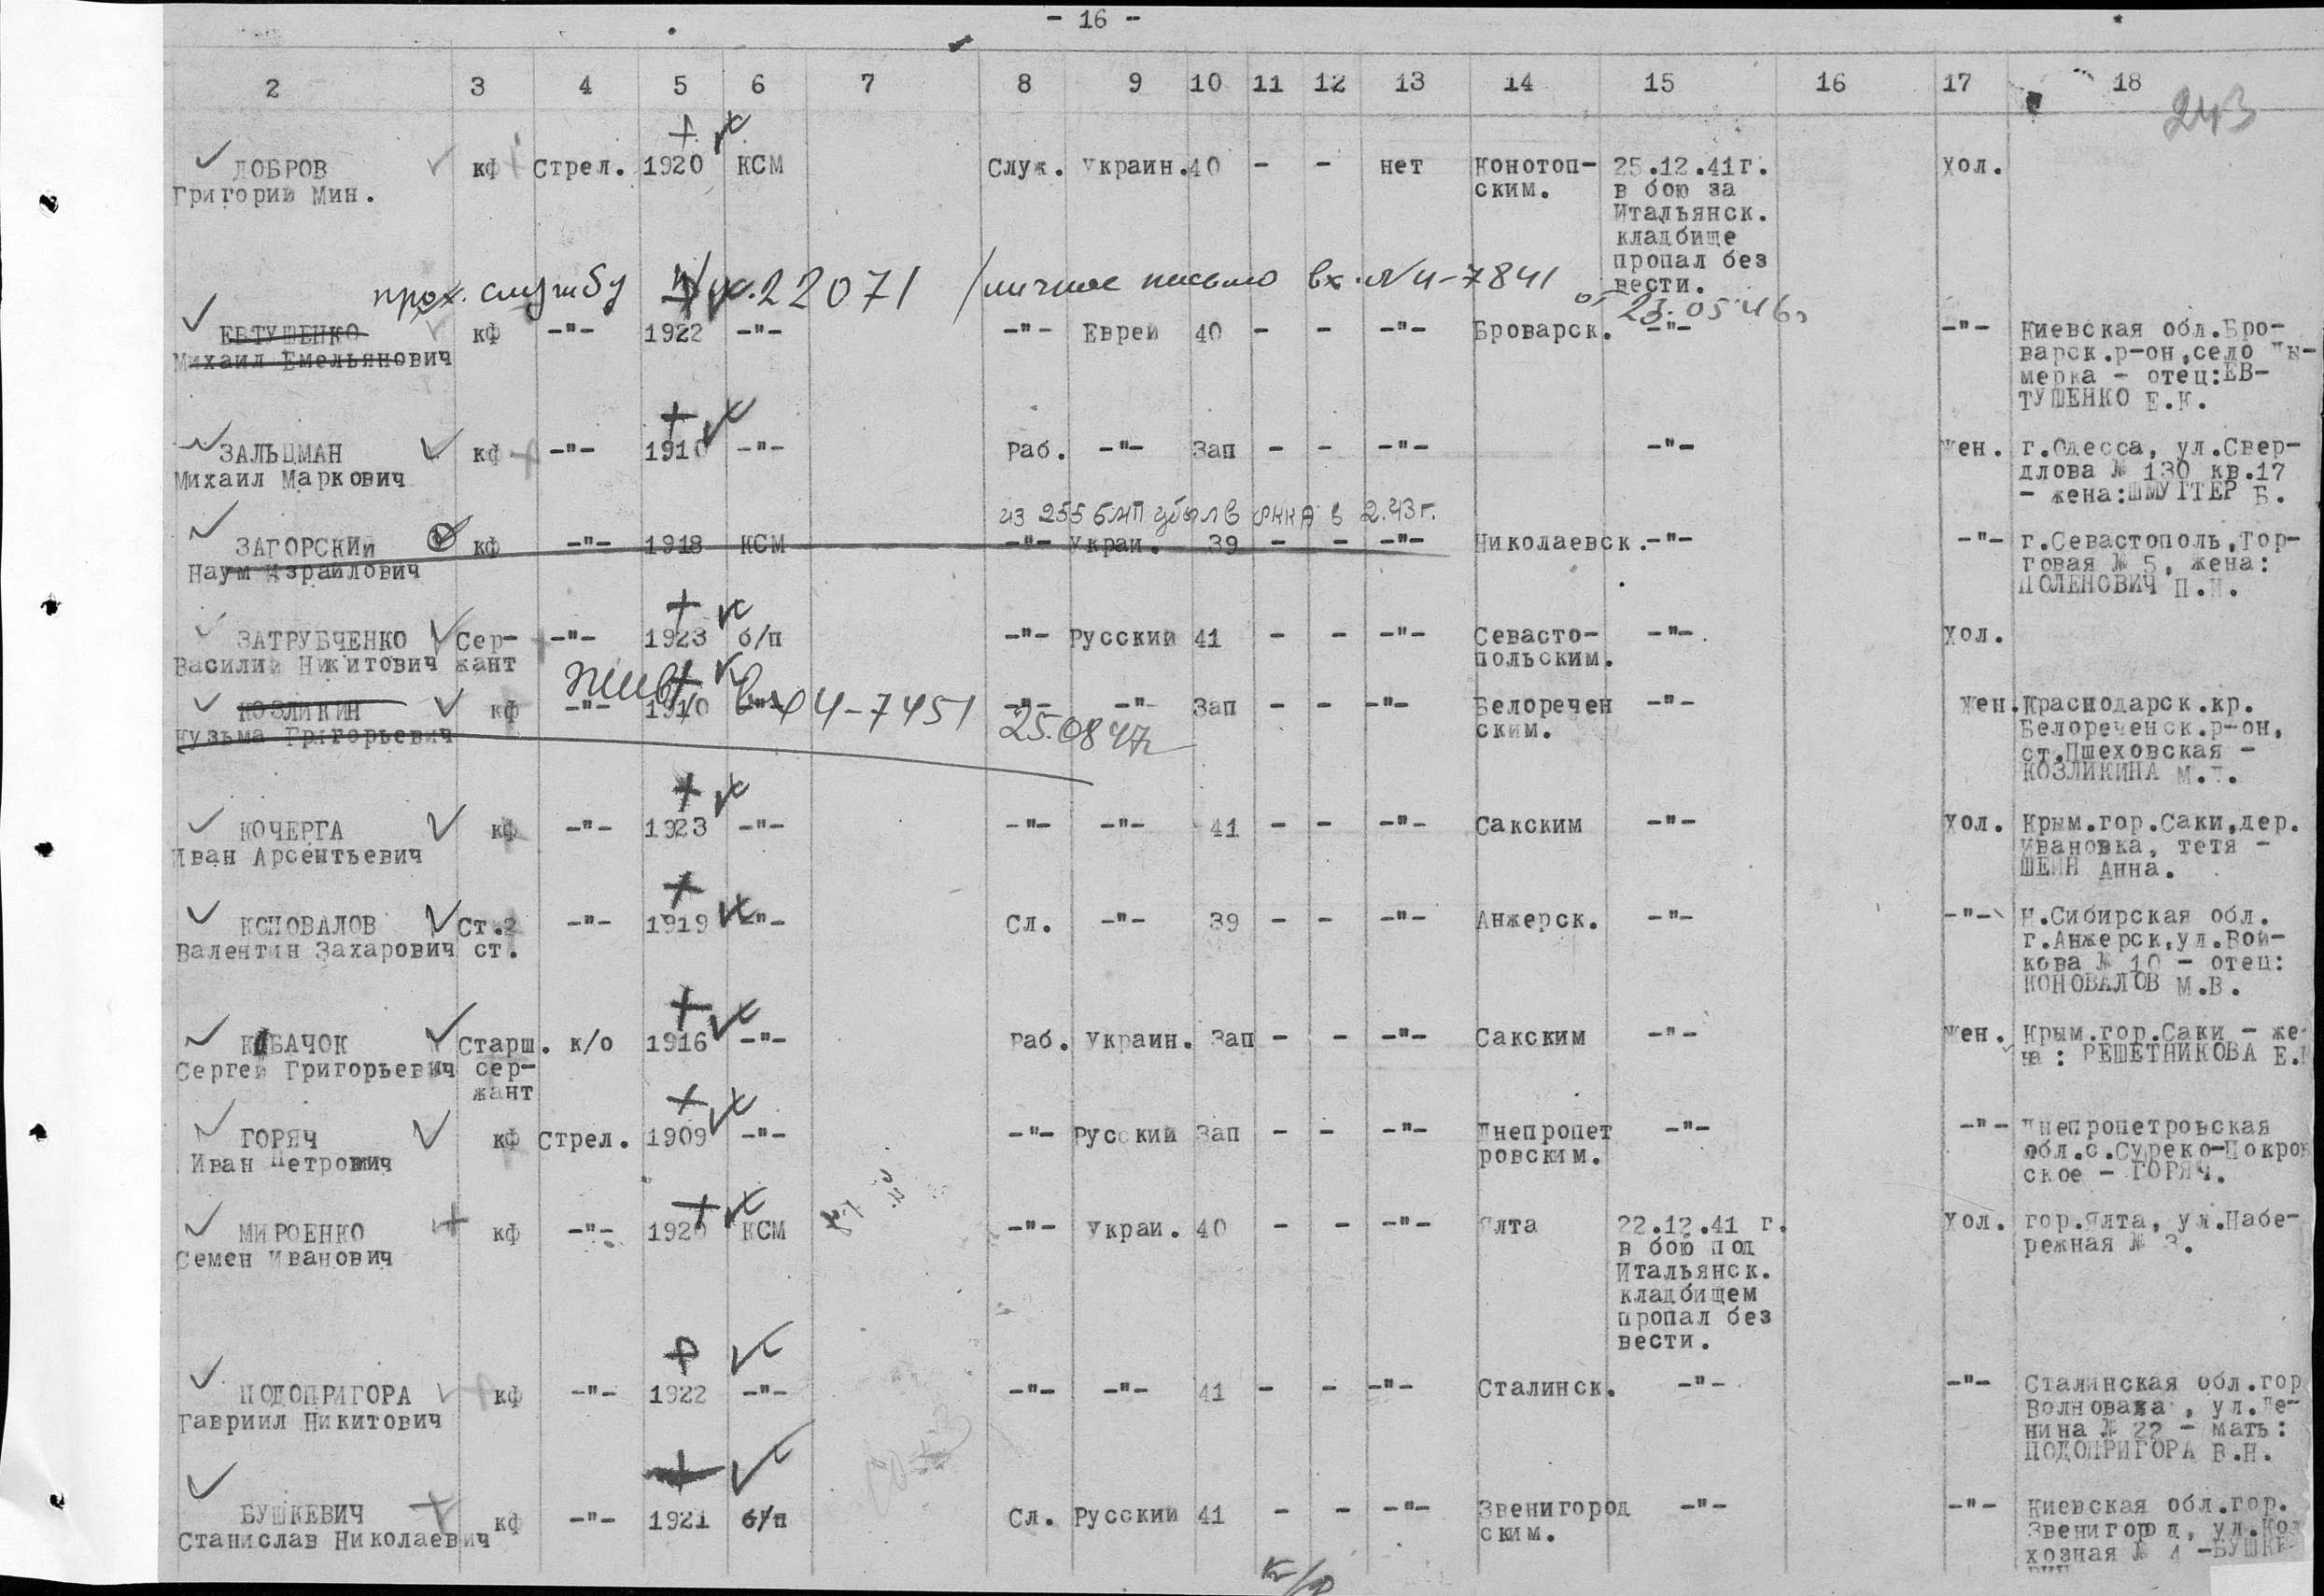 - 16 -
2 3 4 5 6 7 8 9 10 11 12 13 14 15 16 17 18
243
ДОБРОВ кф Стрел. 1920 КСМ Служ. Украин. 40 - - нет Конотоп- 25.12.41г. Хол.
Григорий Мин. ским. в бою за
Итальянск.
кладбище
пропал без
вести.
прох. службу 22071 /личное письмо вх.№ 4-7841
от 23.05.46г
ЕВТУШЕНКО кф -"- 1922 -"- -"- Еврей 40 - - -"- Броварск. -"- -"- Киевская обл.Бро-
Михаил Емельянович варск.р-он,село
мерка - отец:ЕВ-
ТУШЕНКО Е.К.
ЗАЛЬЦМАН кф -"- 1910 -"- Раб. -"- Зап - - -"- -"- Жен. г.Одесса, ул.Свер-
Михаил Маркович длова № 130 кв.17
- жена: Б.
из 255 бмп убыл в РККА в 2.43г.
ЗАГОРСКИЙ кф -"- 1918 КСМ -"- Украи. 39 - - -"- Николаевск. -"- -"- г.Севастополь,Тор-
Наум Израйлович говая № 5, жена:
ПОЛЕНОВИЧ П.
ЗАТРУБЧЕНКО Сер- -"- 1923 б/п -"- Русский 41 - - -"- Севасто- -"- Хол.
Василий Никитович жант польским.
жив вх 4-7451 25.08.47г
КОЗЛИКИН кф -"- 1910 -"- -"- -"- Зап - - -"- Белоречен -"- Жен. Краснодарск.кр.
Кузьма Григорьевич ским. Белореченск.р-он,
ст.Пшеховская -
КОЗЛИКИНА М.
КОЧЕРГА кф -"- 1923 -"- -"- -"- 41 - - -"- Сакским -"- Хол. Крым.гор.Саки,дер.
Иван Арсентьевич Ивановка, тетя -
ШЕИН Анна.
КОНОВАЛОВ Ст.2 -"- 1919 -"- Сл. -"- 39 - - -"- Анжерск. -"- -"- Н.Сибирская обл.
Валентин Захарович ст. г.Анжерск,ул.Вой-
кова № 10 - отец:
КОНОВАЛОВ М.В.
КАБАЧОК Старш. к/о 1916 -"- Раб. Украин. Зап - - -"- Сакским -"- Жен. Крым.гор.Саки - же-
Сергей Григорьевич сер- на: РЕШЕТНИКОВА Е.
жант
ГОРЯЧ кф Стрел. 1909 -"- -"- Русский Зап - - -"- Днепропет -"- -"- Днепропетровская
Иван Петрович ровским. обл.с.Суреко-Покров
ское - ГОРЯЧ.
МИРОЕНКО кф -"- 1920 КСМ -"- Украи. 40 - - -"- Ялта 22.12.41 г. Хол. гор.Ялта, ул.Набе-
Семен Иванович в бою под режная № 3.
Итальянск.
кладбищем
пропал без
вести.
ПОДОПРИГОРА кф -"- 1922 -"- -"- -"- 41 - - -"- Сталинск. -"- -"- Сталинская обл.гор
Гавриил Никитович Волноваха, ул.Ле-
нина № 22 - мать:
ПОДОПРИГОРА В.Н.
БУШКЕВИЧ кф -"- 1921 б/п Сл. Русский 41 - - -"- Звенигород -"- -"- Киевская обл.гор.
Станислав Николаевич ским. Звенигород, ул.Кол
хозная № 4 -БУШКЕ